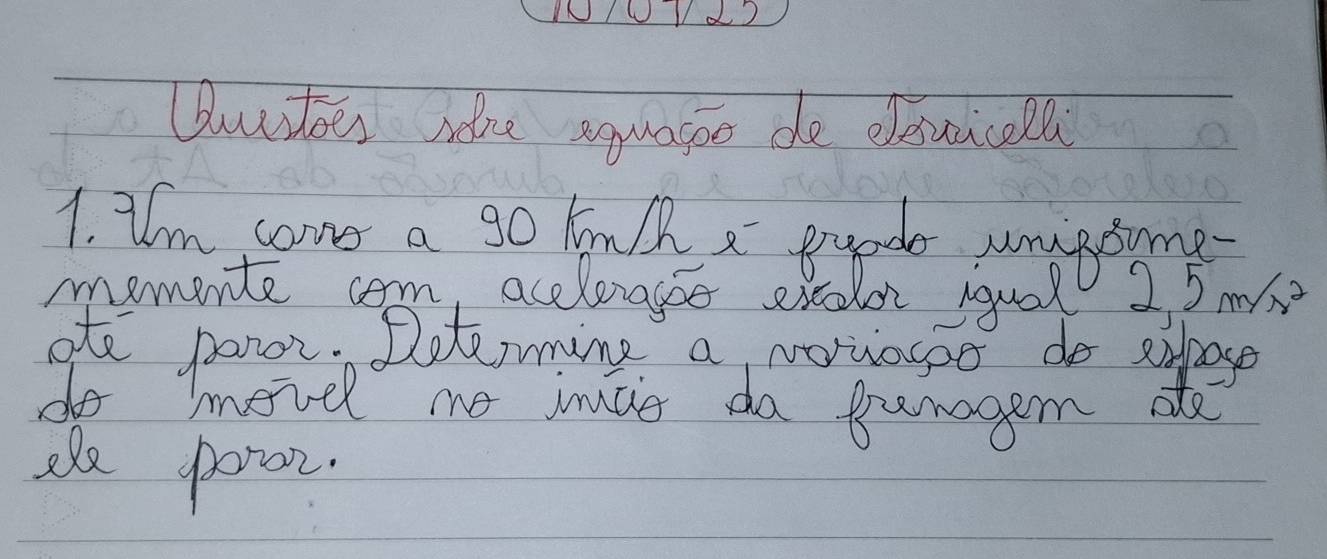 10/04/25
Questões sobre equação de Torricelli
1. Um carro a 90 Km/h é freado uniforme-
memente com aceleração escalar igual 2,5 m/s²
até parar. Determine a variação do espaço
do móvel no início da frenagem até
ele parar.